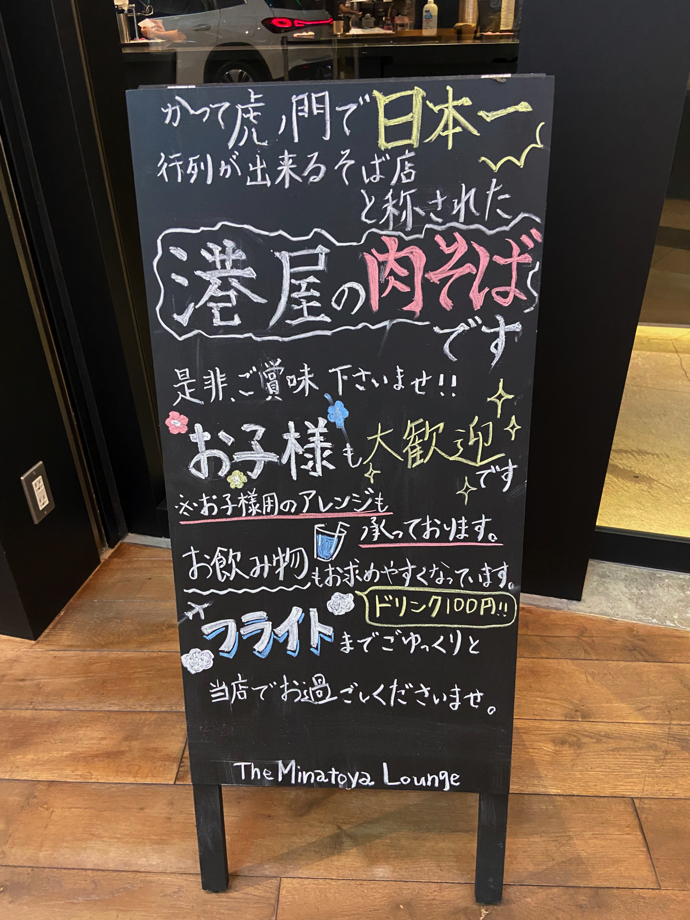 かつて虎ノ門で日本一
行列が出来るそば店
と称された
港屋の肉そば
です
是非、ご賞味下さいませ!!
お子様も大歓迎です
※お子様用のアレンジも
承っております。
お飲み物もお求めやすくなっています。
ドリンク100円!!
フライトまでごゆっくりと
当店でお過ごしくださいませ。
The Minatoya Lounge